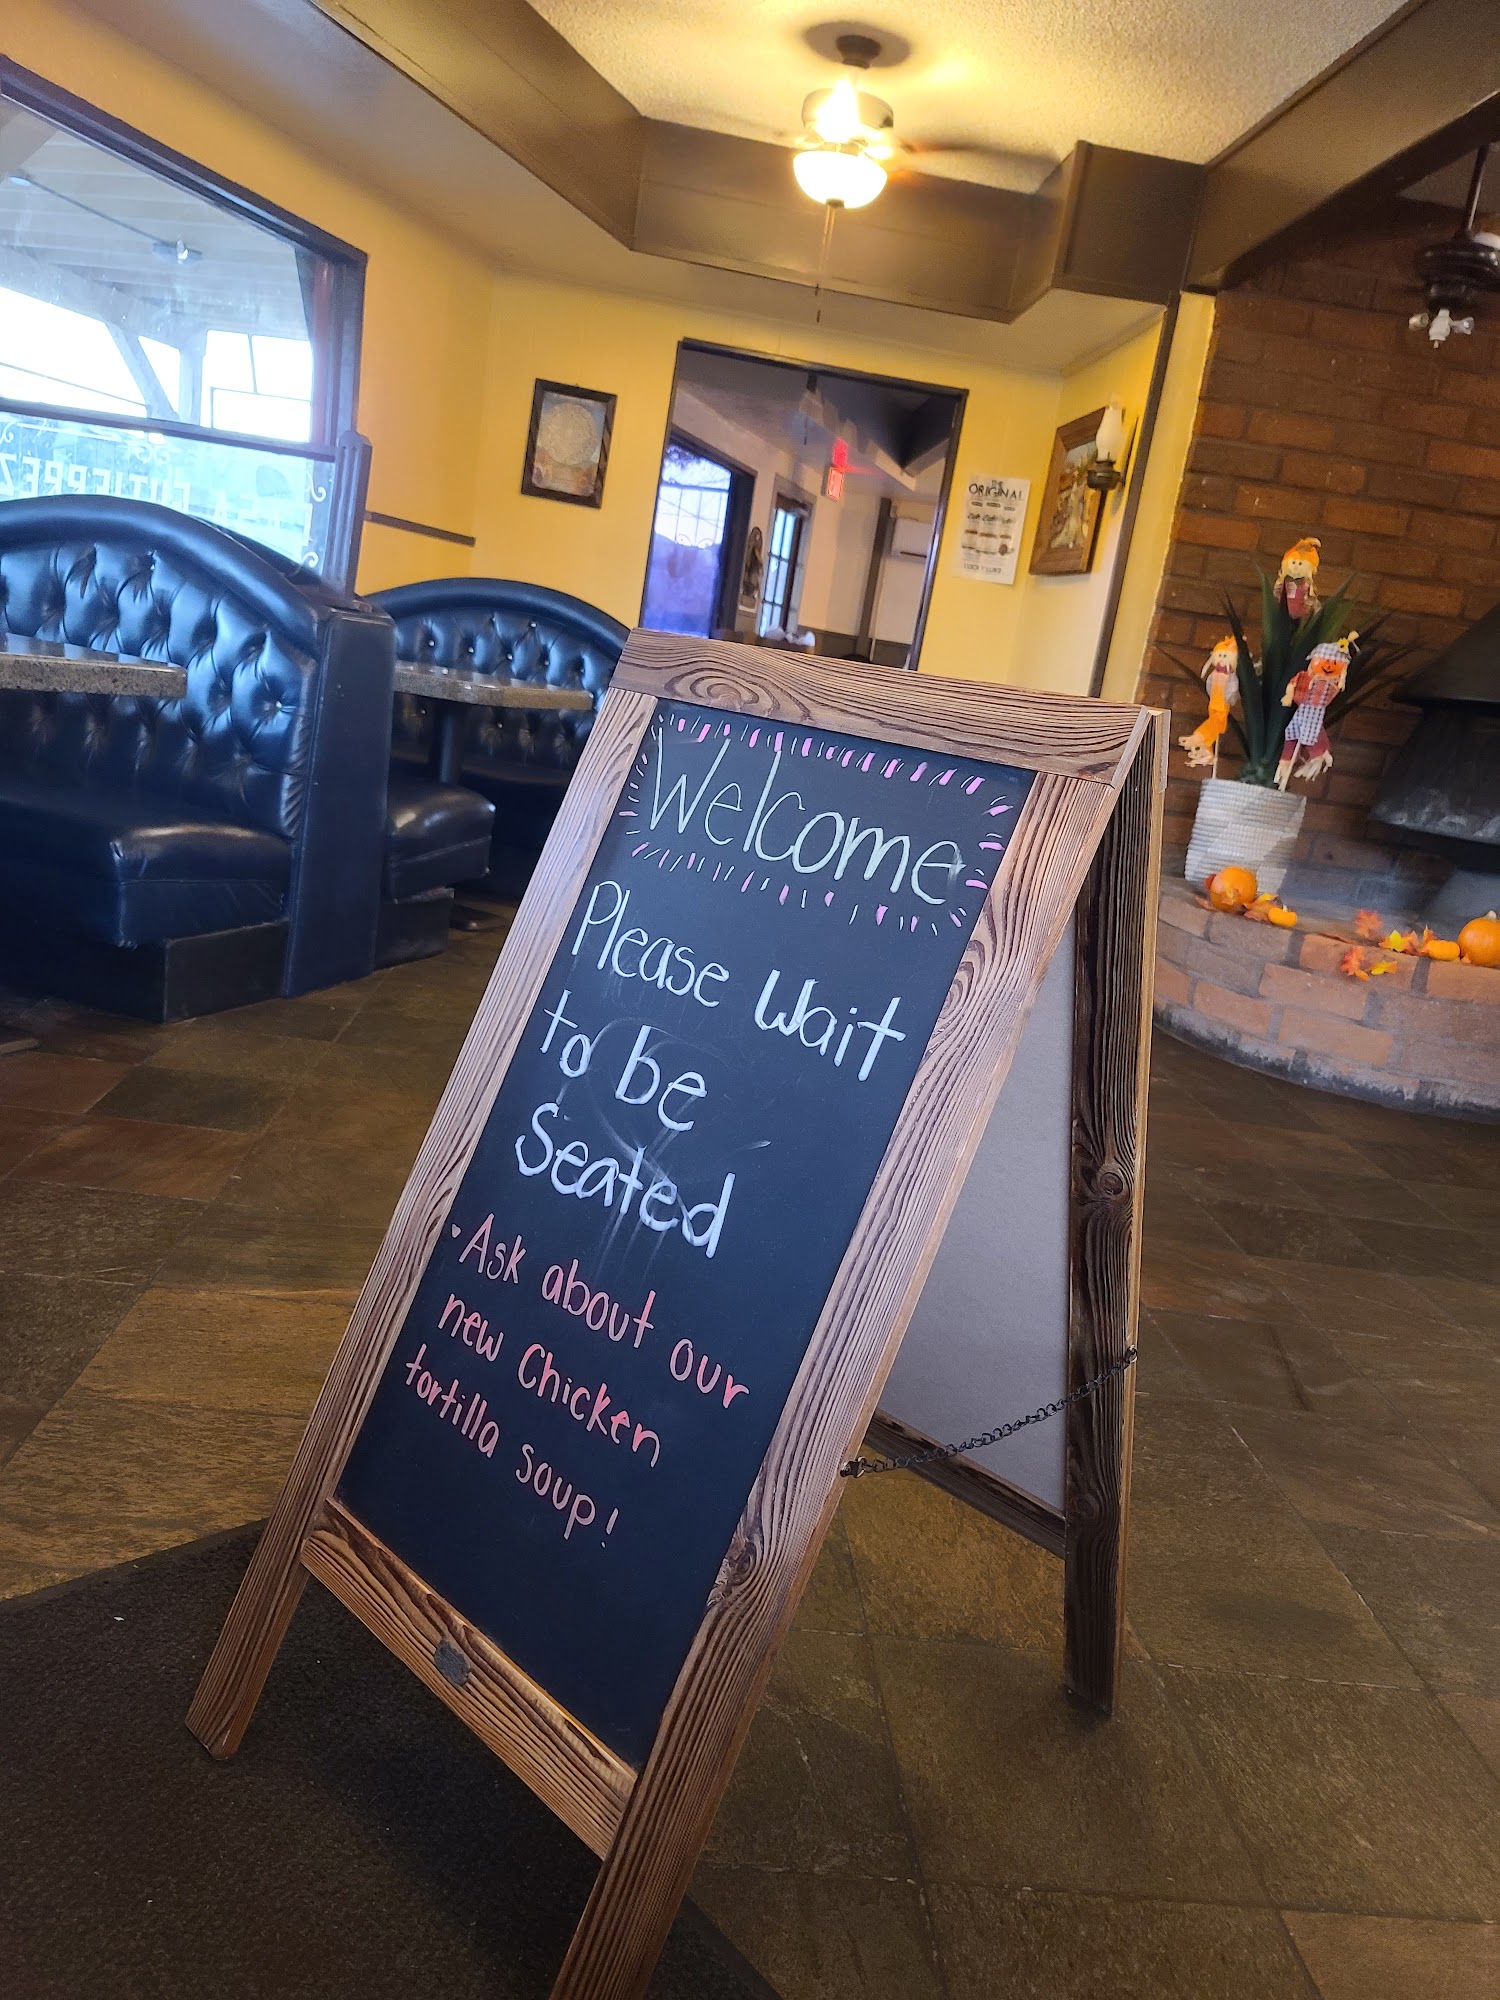 GUTIERREZ
THE
ORIGINAL
Welcome
Please Wait
to be
Seated
• Ask about our
new Chicken
tortilla soup!